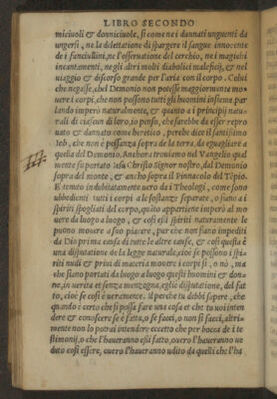 LIBRO SECONDO
miciuoli & donniciuole, si come ne i dannati unguenti da
ungersi, ne la delettatione di spargere il sangue innocente
de i fanciullini, ne l'osseruatione del cerchio, ne i magichi
incantamenti, ne gli altri molti diabolici maleficij, & nel
uiaggio & discorso grande per l'aria con il corpo. Cōsi
che negasse, chel Demonio non potesse maggiormente mo
uere i corpi, che non possono tutti gli huomini insieme par
lando imperò naturalmente, & quanto a i principij natu-
rali di ciascun di loro, io penso, che sarebbe da esser repro
uato & dannato come heretico, perche dice il santissimo
Iob, che non è possanza sopra de la terra, da eguagliare a
quella del Demonio. Anchora trouiamo nel Vangelio qual
mente fu portato Iesu Christo Signor nostro, dal Demonio
sopra del monte, & ancho sopra il Pinnacolo del Tēpio.
E tenuto indubitatamente uero da i Theologi, come sono
ubbedienti tutti i corpi a le sostanze separate, o siano a i
spiriti spogliati del corpo, quāto appartiene imperò al mo
uere da luogo a luogo, & così essi spiriti naturalmente le
puono mouere a suo piacere, pur che non siano impediti
da Dio prima causa di tutte le altre cause, & così questa è
una disputatione de la legge naturale, cioè se possono i spi-
riti nudi & priui di materia mouere i corpi sì, o nò, ma
che siano portati da luogo a luogo questi huomini & don-
ne, in uerita et senza menzogna, egli è disputatione, del fat
to, cioè se così è ueramente. il perche tu debbi sapere, che
quando è certo che si possa fare una cosa et che tu uoi inten
dere & conoscere se è fatta, o se facci, o non si facci, altri-
mente non lo potrai intendere eccetto che per bocca de i te
stimonij, o che l'haueranno essi fatto, ouero l'haueranno ue
duto così essere, ouero l'haueranno udito da quelli che l'ha